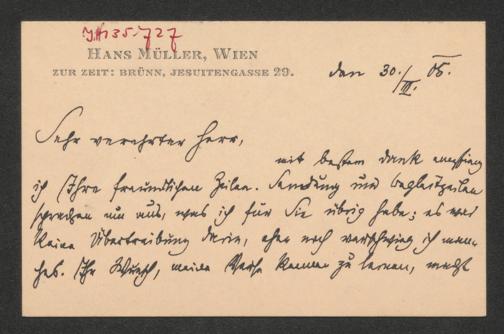 I.N. 135.727
HANS MÜLLER, WIEN
ZUR ZEIT: BRÜNN, JESUITENGASSE 29.
den 30./III. 05.
Sehr verehrter Herr,
mit bestem Dank empfing
ich Ihre freundlichen Zeilen. Sendung und Begleitzeilen
sprechen nur aus, was ich für Sie übrig habe; es war
keine Übertreibung darin, eher noch verschwieg ich man-
ches. Ihr Wunsch, meine Verse kennen zu lernen, macht